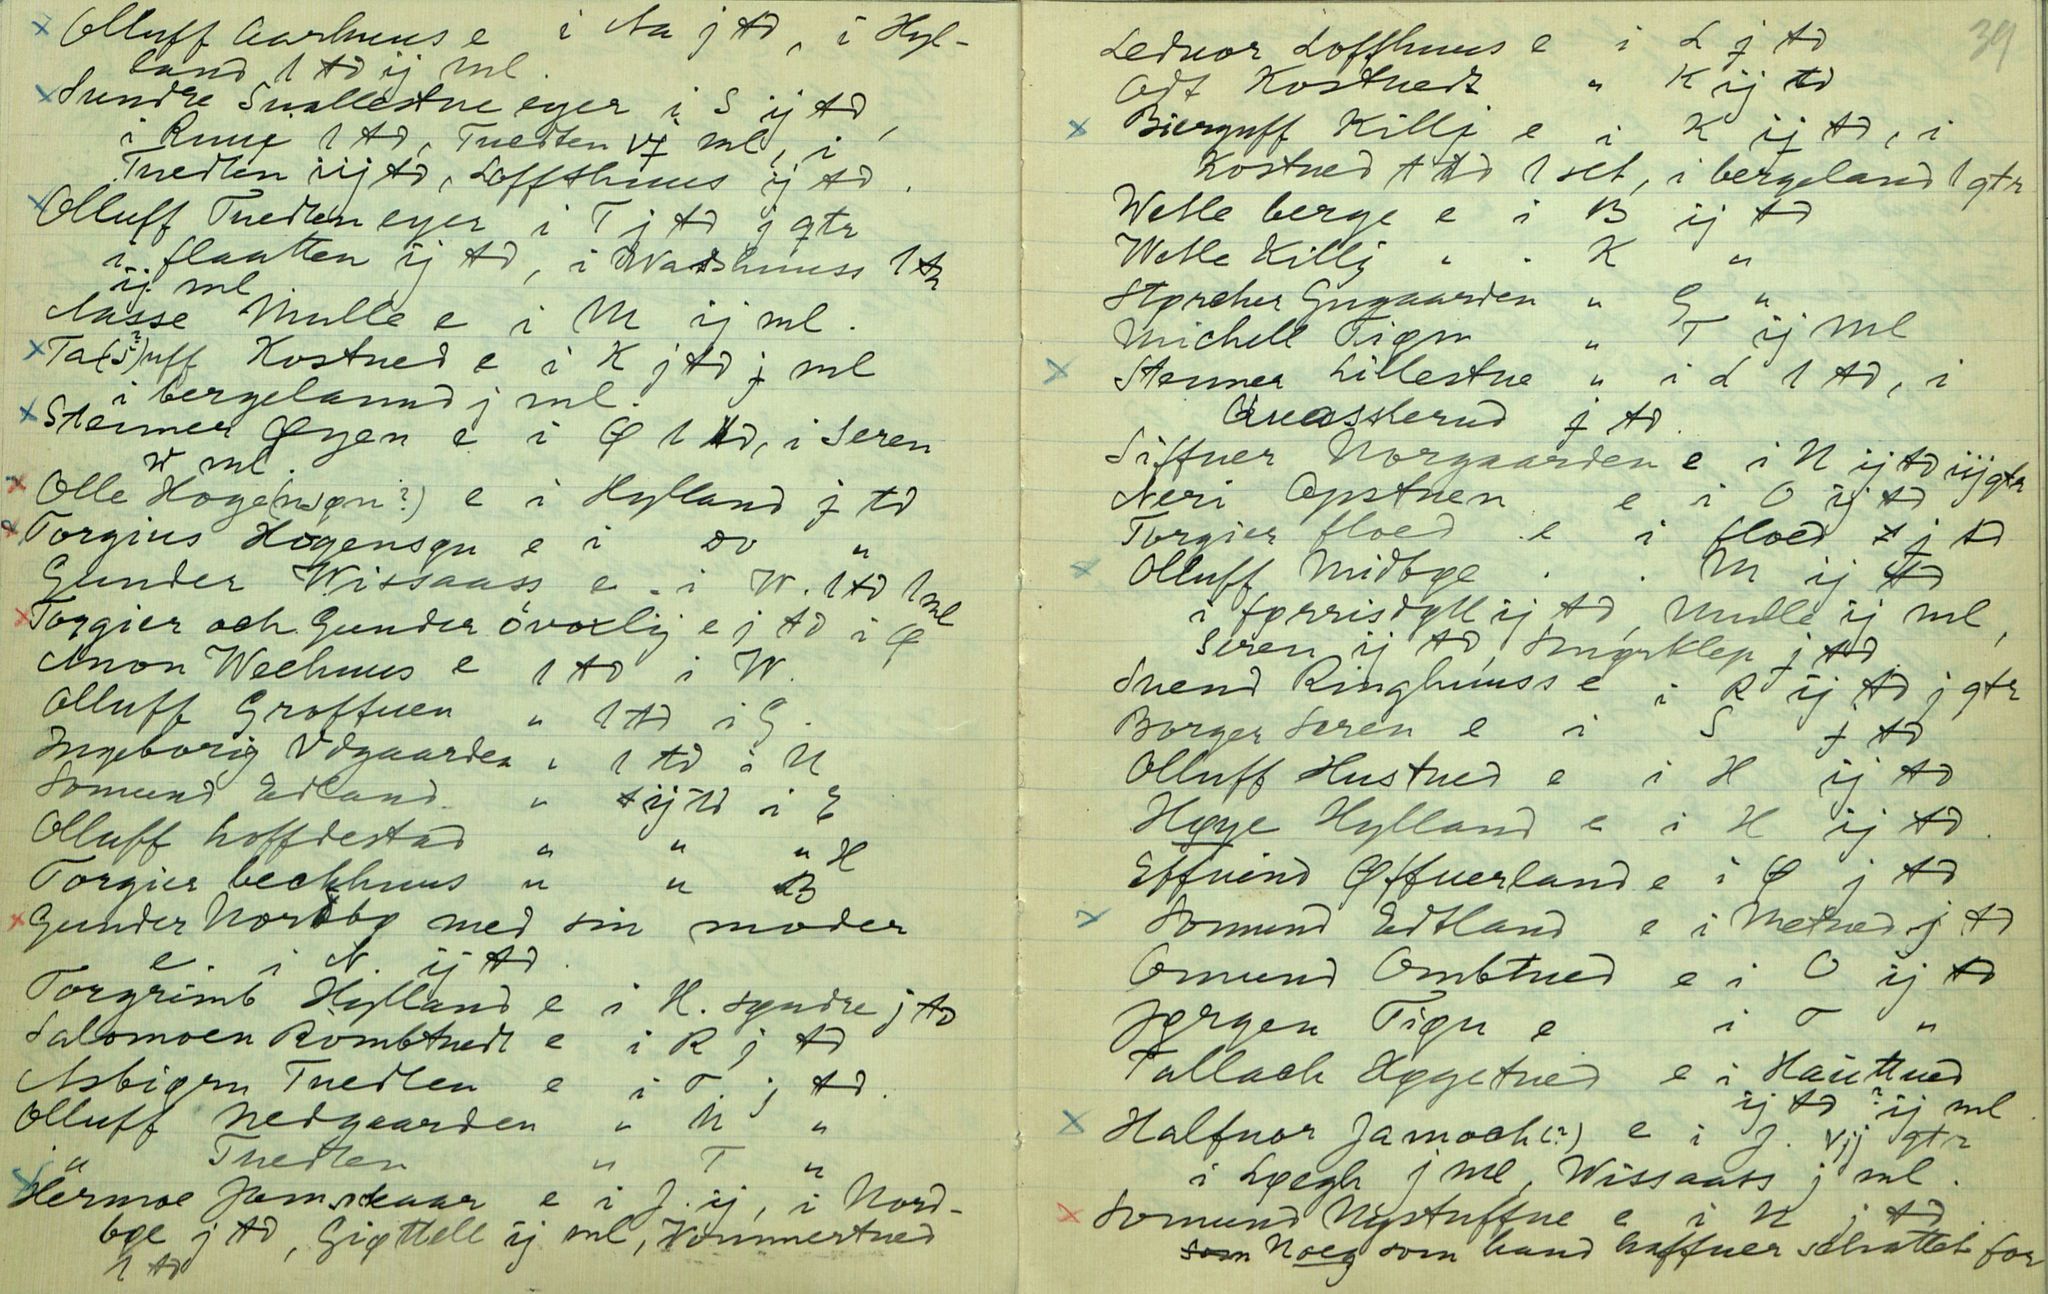 Olluff Aarhuus e i Aa j td, i Hyl-
land 1 td ij ml.
Sundre Suallestue eyer i S ij td,
i Ruue 1 td, Tuedten vj ml, i
Tuedten iij td, Loffthuus ij td.
Olluff Tuedten eyer i T j td j qtr
i flaatten ij td, i Wadshuuss 1 td
ij ml
Aasse Mulle e i M ij ml.
Ta(s?)uff Kostued e i K j td j ml
i bergelannd j ml.
Stenner Øyen e i Ø 1 td, i Seren
ml.
Olle Hoge(nsøn?) e i Hylland j td
Torgius Hogensøn e i do "
Gunder Wissaass e i W. 1 td 1 ml
Torgier och Gunder övorlij e j td i Ø
Anon Weehuus e 1 td i W.
Olluff Groffuen " 1 td i G.
Ingeborig Vdgaarden " 1 td i U
Somund Edland " ij td i E
Olluff hoffdestad " " " H
Torgier beckhuus " " B
Gunder Nordbø med sin moder
e. i N. ij td.
Torgrimb Hylland e i H. syndre j td
Salomoen Rombtuedt e i R j td
Asbiørn Tuedten e i T j td.
Olluff Nedgaarden " N "
" Tuedten " T "
Hermoe Jamskaar e i J. ij, i Nord-
bøe j td, Giøttell ij ml, Wommertued
1 td
39
Leduor Loffthuus e i L j td
Odt Kostuedt " K ij td
Bierguff Killj e i K ij td, i
Kostued 1 td 1 set, i bergeland 1 qtr
Wetle berge e i B ij td
Wetle Killj " . K "
Størcher Gygaarden " G "
Michell Tiøn " T ij ml
Stenner Lillestue " i L 1 td, i
Quasskerud j td.
Siffuer Norgaarden e i N ij td iij qtr
Neri Opstuen e i O ij td
Torgier floed e i floed j td
Olluff Midbøe . . M ij td
i førrisdall ij td, Mulle ij ml,
Seren ij td, Smørklep j td
Suend Ringhuuss e i R ij td j qtr
Borger Seren e i S j td
Olluff Hustued e i H ij td
Høye Hylland e i H ij td.
Effuind Øffuerland e i Ø j td
Somund Edtland e i Metued j td
Omund Ombtued e i O ij td
Jørgen Tiøn e i T "
Tallach Høgetued e i Hauttued
ij td ? ij ml.
Halfuor Jamoch(?) e i J. vjj qtr
i Løegh j ml, Wissaass j ml.
Somund Nystuffue e i N j td
som Noeg som hand haffuer schattet for